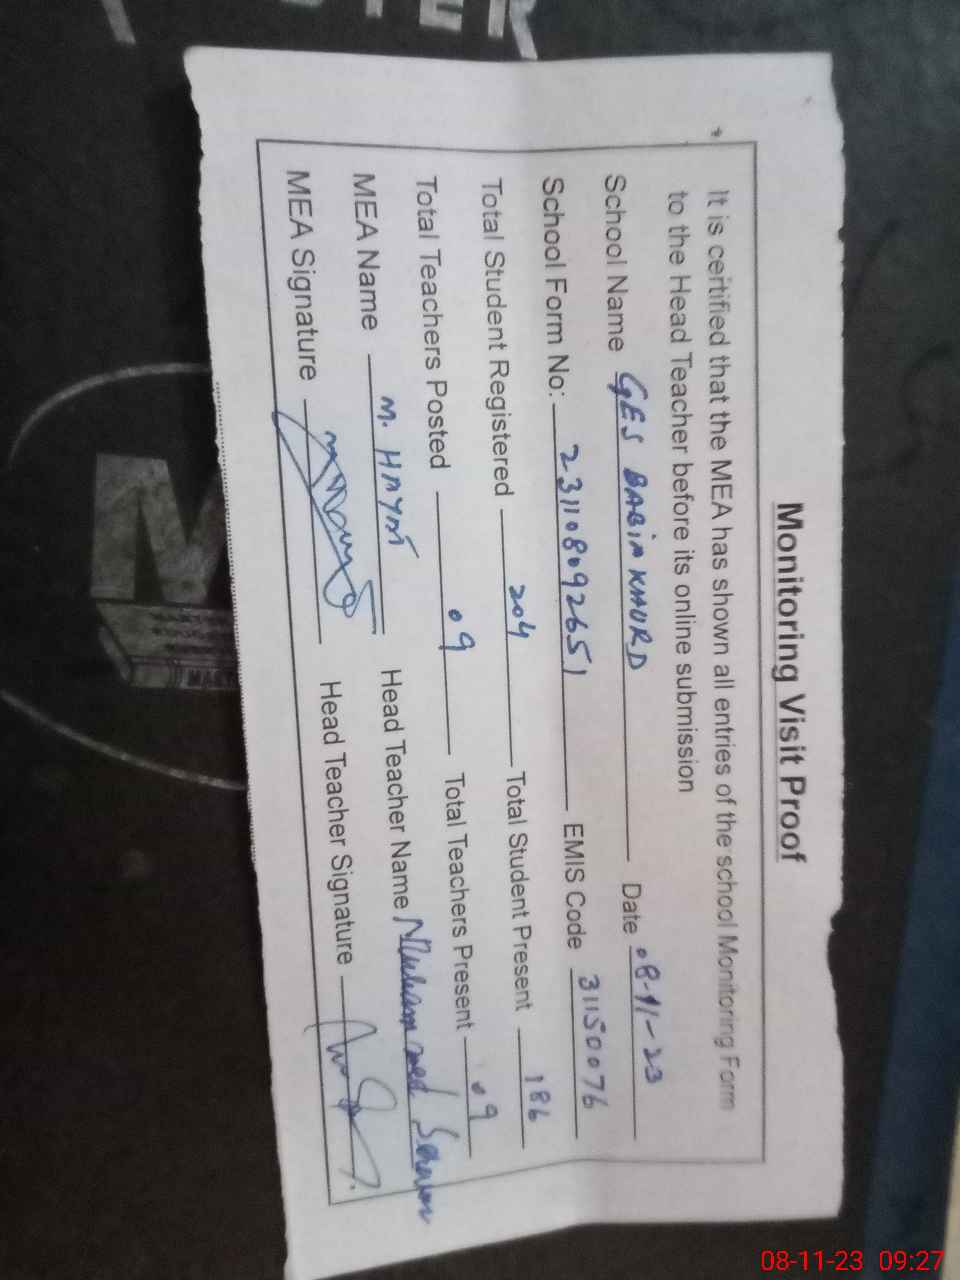 Monitoring Visit Proof
It is certified that the MEA has shown all entries of the school Monitoring Form
to the Head Teacher before its online submission
School Name GES BABIA KHURD Date 08-11-23
School Form No: 231108092651 EMIS Code 31150076
Total Student Registered 204 Total Student Present 186
Total Teachers Posted 09 Total Teachers Present 09
MEA Name M. HAYAT Head Teacher Name Muhammad
MEA Signature Head Teacher Signature
08-11-23 09:27